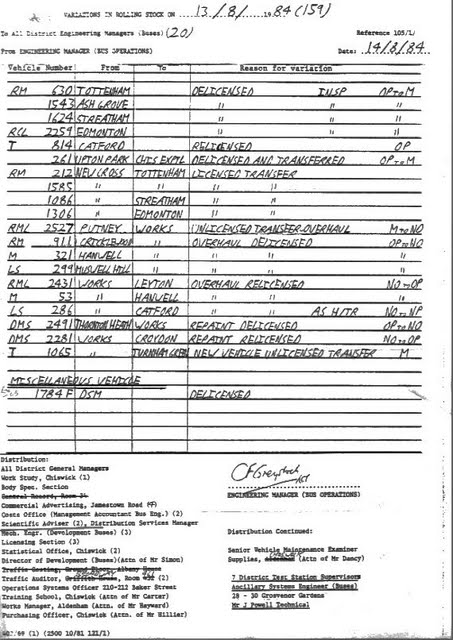 VARIATIONS IN ROLLING STOCK ON 13/8/1984 (159)
To All District Engineering Managers (Buses) (20) Reference 105/1/
From ENGINEERING MANAGER (BUS OPERATIONS) Date: 14/8/84
Vehicle Number From To Reason for variation
RM 630 TOTTENHAM DELICENSED INSP OP TO M
1543 ASH GROVE " " "
1624 STREATHAM " " "
RCL 2259 EDMONTON " " "
T 814 CATFORD RELICENSED OP
261 UPTON PARK CHIS EXPTL DELICENSED AND TRANSFERRED OP TO M
RM 212 NEW CROSS TOTTENHAM LICENSED TRANSFER
1585 " " " "
1086 " STREATHAM " "
1306 " EDMONTON " "
RML 2527 PUTNEY WORKS UNLICENSED TRANSFER-OVERHAUL M TO NO
RM 911 CRICKLEWOOD " OVERHAUL DELICENSED OP TO NO
M 321 HANWELL " " " "
LS 299 MUSWELL HILL " " " "
RML 2431 WORKS LEYTON OVERHAUL RELICENSED NO TO OP
M 53 " HANWELL " " "
LS 286 " CATFORD " " AS H/TR NO TO NP
DMS 2491 THORNTON HEATH WORKS REPAINT DELICENSED OP TO NO
DMS 2281 WORKS CROYDON REPAINT RELICENSED NO TO OP
T 1065 " TURNHAM GREEN NEW VEHICLE UNLICENSED TRANSFER M
MISCELLANEOUS VEHICLE
1784 F DSM DELICENSED
Distribution:
All District General Managers
Work Study, Chiswick (1)
Body Spec. Section
General Record, Room
Commercial Advertising, Jamestown Road
Costs Office (Management Accountant Bus Eng.) (2)
Scientific Adviser (2), Distribution Services Manager
Mech. Engr. (Development Buses) (3)
Licensing Section (3)
Statistical Office, Chiswick (2)
Director of Development (Buses) (Attn of Mr Simon)
Traffic Costing, Ground Floor, Albany House
Traffic Auditor, Griffith House, Room
Operations Systems Officer 210-212 Baker Street
Training School, Chiswick (Attn of Mr Carter)
Works Manager, Aldenham (Attn of Mr Hayward)
Purchasing Officer, Chiswick (Attn of Mr Hillier)
(1) (2500 10/81 1ZI/1)
ENGINEERING MANAGER (BUS OPERATIONS)
Distribution Continued:
Senior Vehicle Maintenance Examiner
Supplies, Aldenham (Attn of Mr Dancy)
7 District Test Station Supervisors
Ancillary Systems Engineer (Buses)
28 - 30 Grosvenor Gardens
Mr J Powell Technical